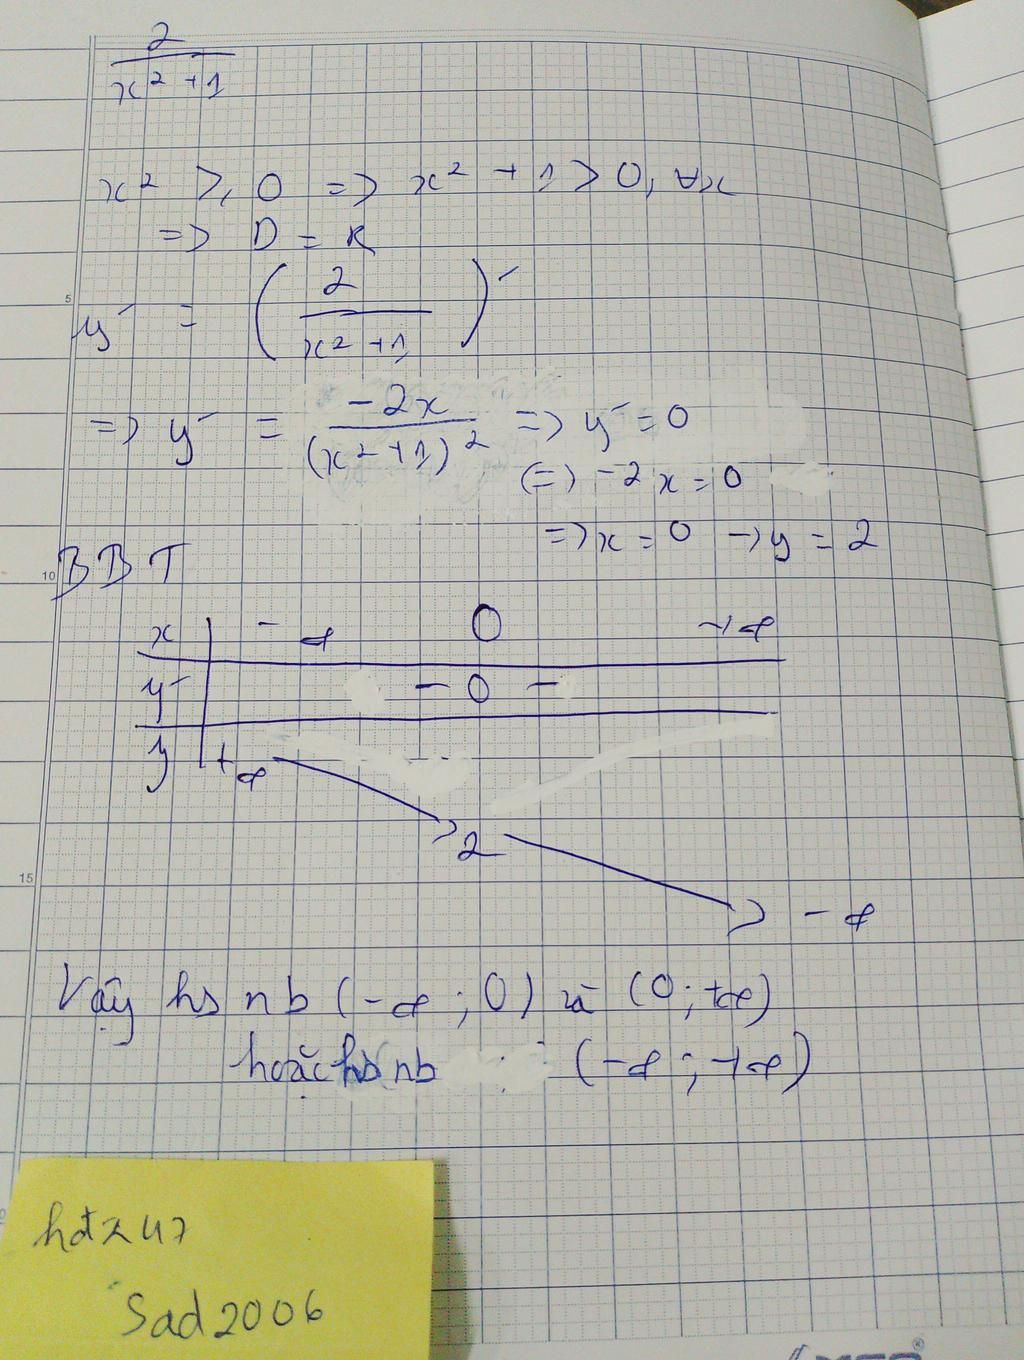 2
x² + 1
x² ≥ 0 => x² + 1 > 0, ∀x
=> D = R
y' = ( 2 / x² + 1 )'
=> y' = -2x / (x² + 1)² => y' = 0
(=) -2x = 0
=> x = 0 -> y = 2
BBT
x -∞ 0 +∞
y' - 0 -
y +∞
2
-∞
Vậy hs nb (-∞; 0) và (0; +∞)
hoặc hs nb (-∞; +∞)
Sad2006
5
10
15